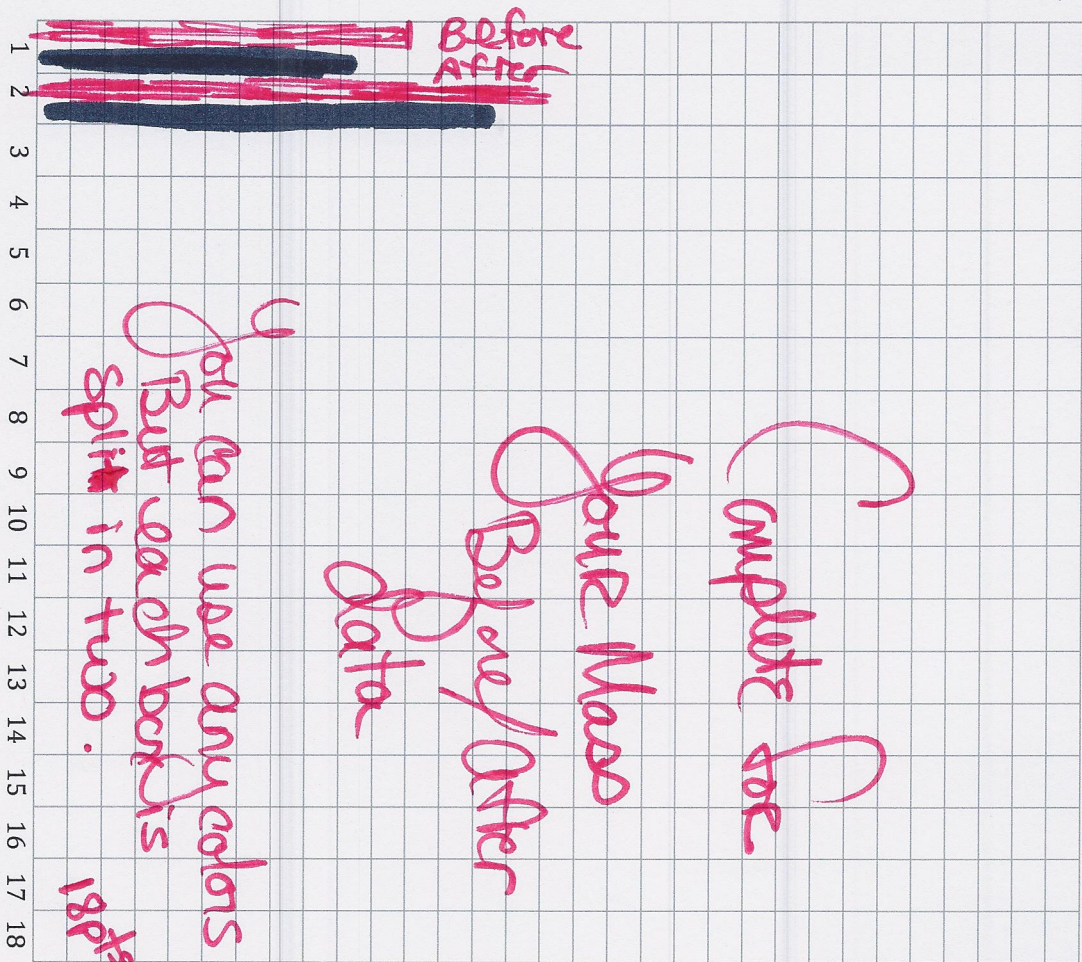 Before
After
1
2
3
4
5
6
7
8
9
10
11
12
13
14
15
16
17
18
Complete for
Your Mass
Before/After
data
You can use any colors
But each box is
split in two.
18pts